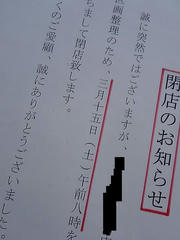 閉店のお知らせ
誠に突然ではございますが、
区画整理のため、三月十五日(土)午前八時を
ちまして閉店致します。
くのご愛顧、誠にありがとうございました。